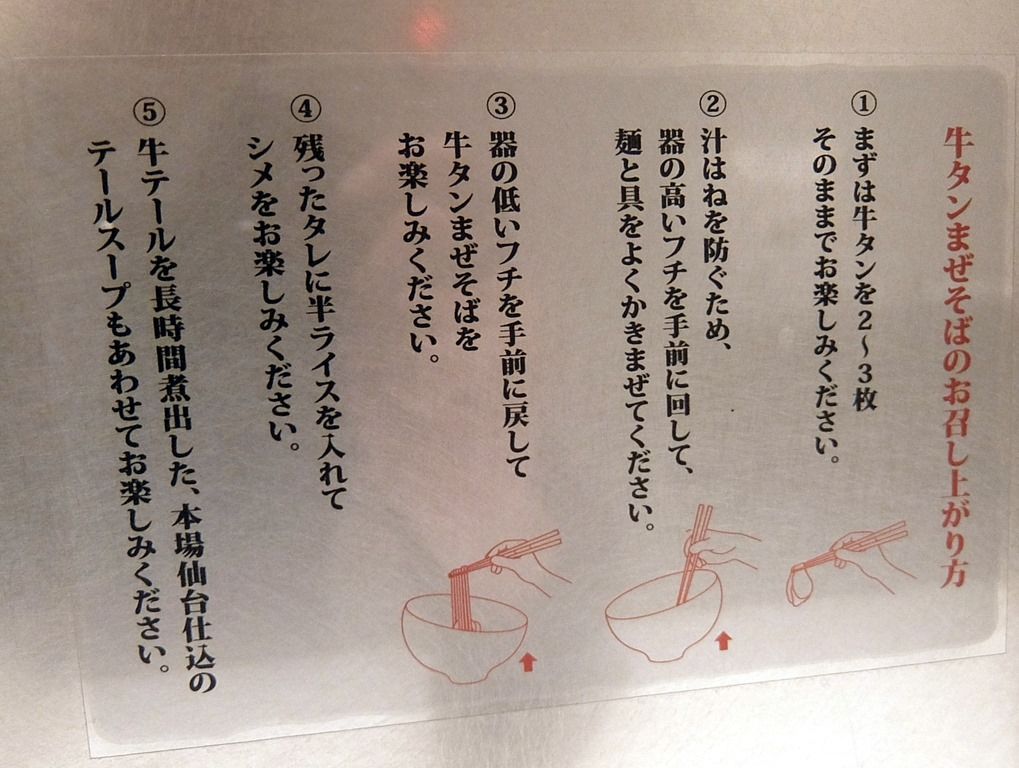 牛タンまぜそばのお召し上がり方
①まずは牛タンを2〜3枚
そのままでお楽しみください。
②汁はねを防ぐため、
器の高いフチを手前に回して、
麺と具をよくかきまぜてください。
③器の低いフチを手前に戻して
牛タンまぜそばを
お楽しみください。
④残ったタレに半ライスを入れて
シメをお楽しみください。
⑤牛テールを長時間煮出した、本場仙台仕込の
テールスープもあわせてお楽しみください。